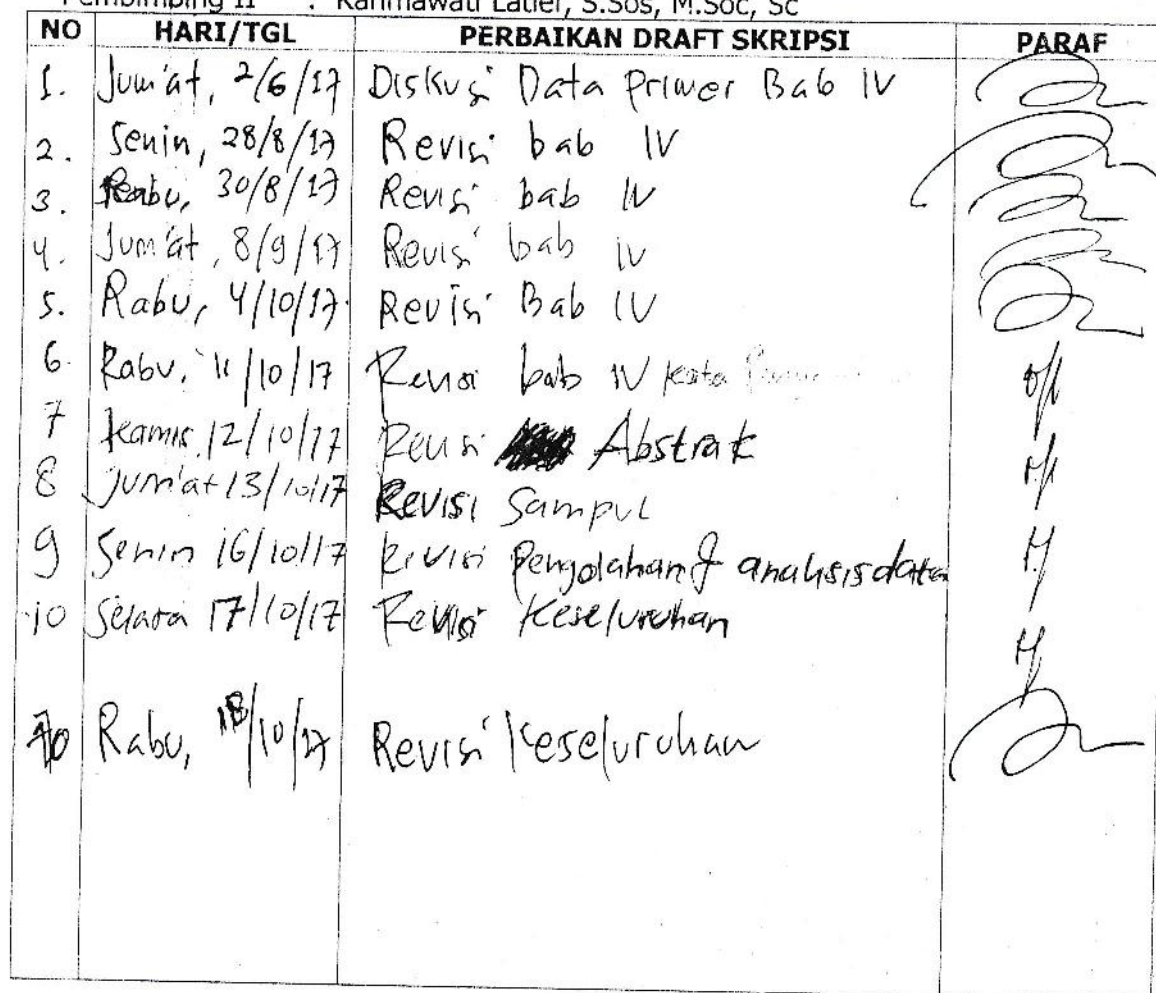 Pembimbing II : Rahmawati Latief, S.Sos, M.Soc, Sc
NO HARI/TGL PERBAIKAN DRAFT SKRIPSI PARAF
1. Jum'at, 2/6/17 Diskusi Data Primer Bab IV
2. Senin, 28/8/17 Revisi bab IV
3. Rabu, 30/8/17 Revisi bab IV
4. Jum'at, 8/9/17 Revisi bab IV
5. Rabu, 4/10/17 Revisi Bab IV
6. Rabu, 11/10/17 Revisi bab IV Kata
7 Kamis 12/10/17 Revisi Abstrak
8 Jum'at 13/10/17 Revisi Sampul
9 Senin 16/10/17 Revisi Pengolahan & analisis data
10 Selasa 17/10/17 Revisi Keseluruhan
10 Rabu, 18/10/17 Revisi Keseluruhan